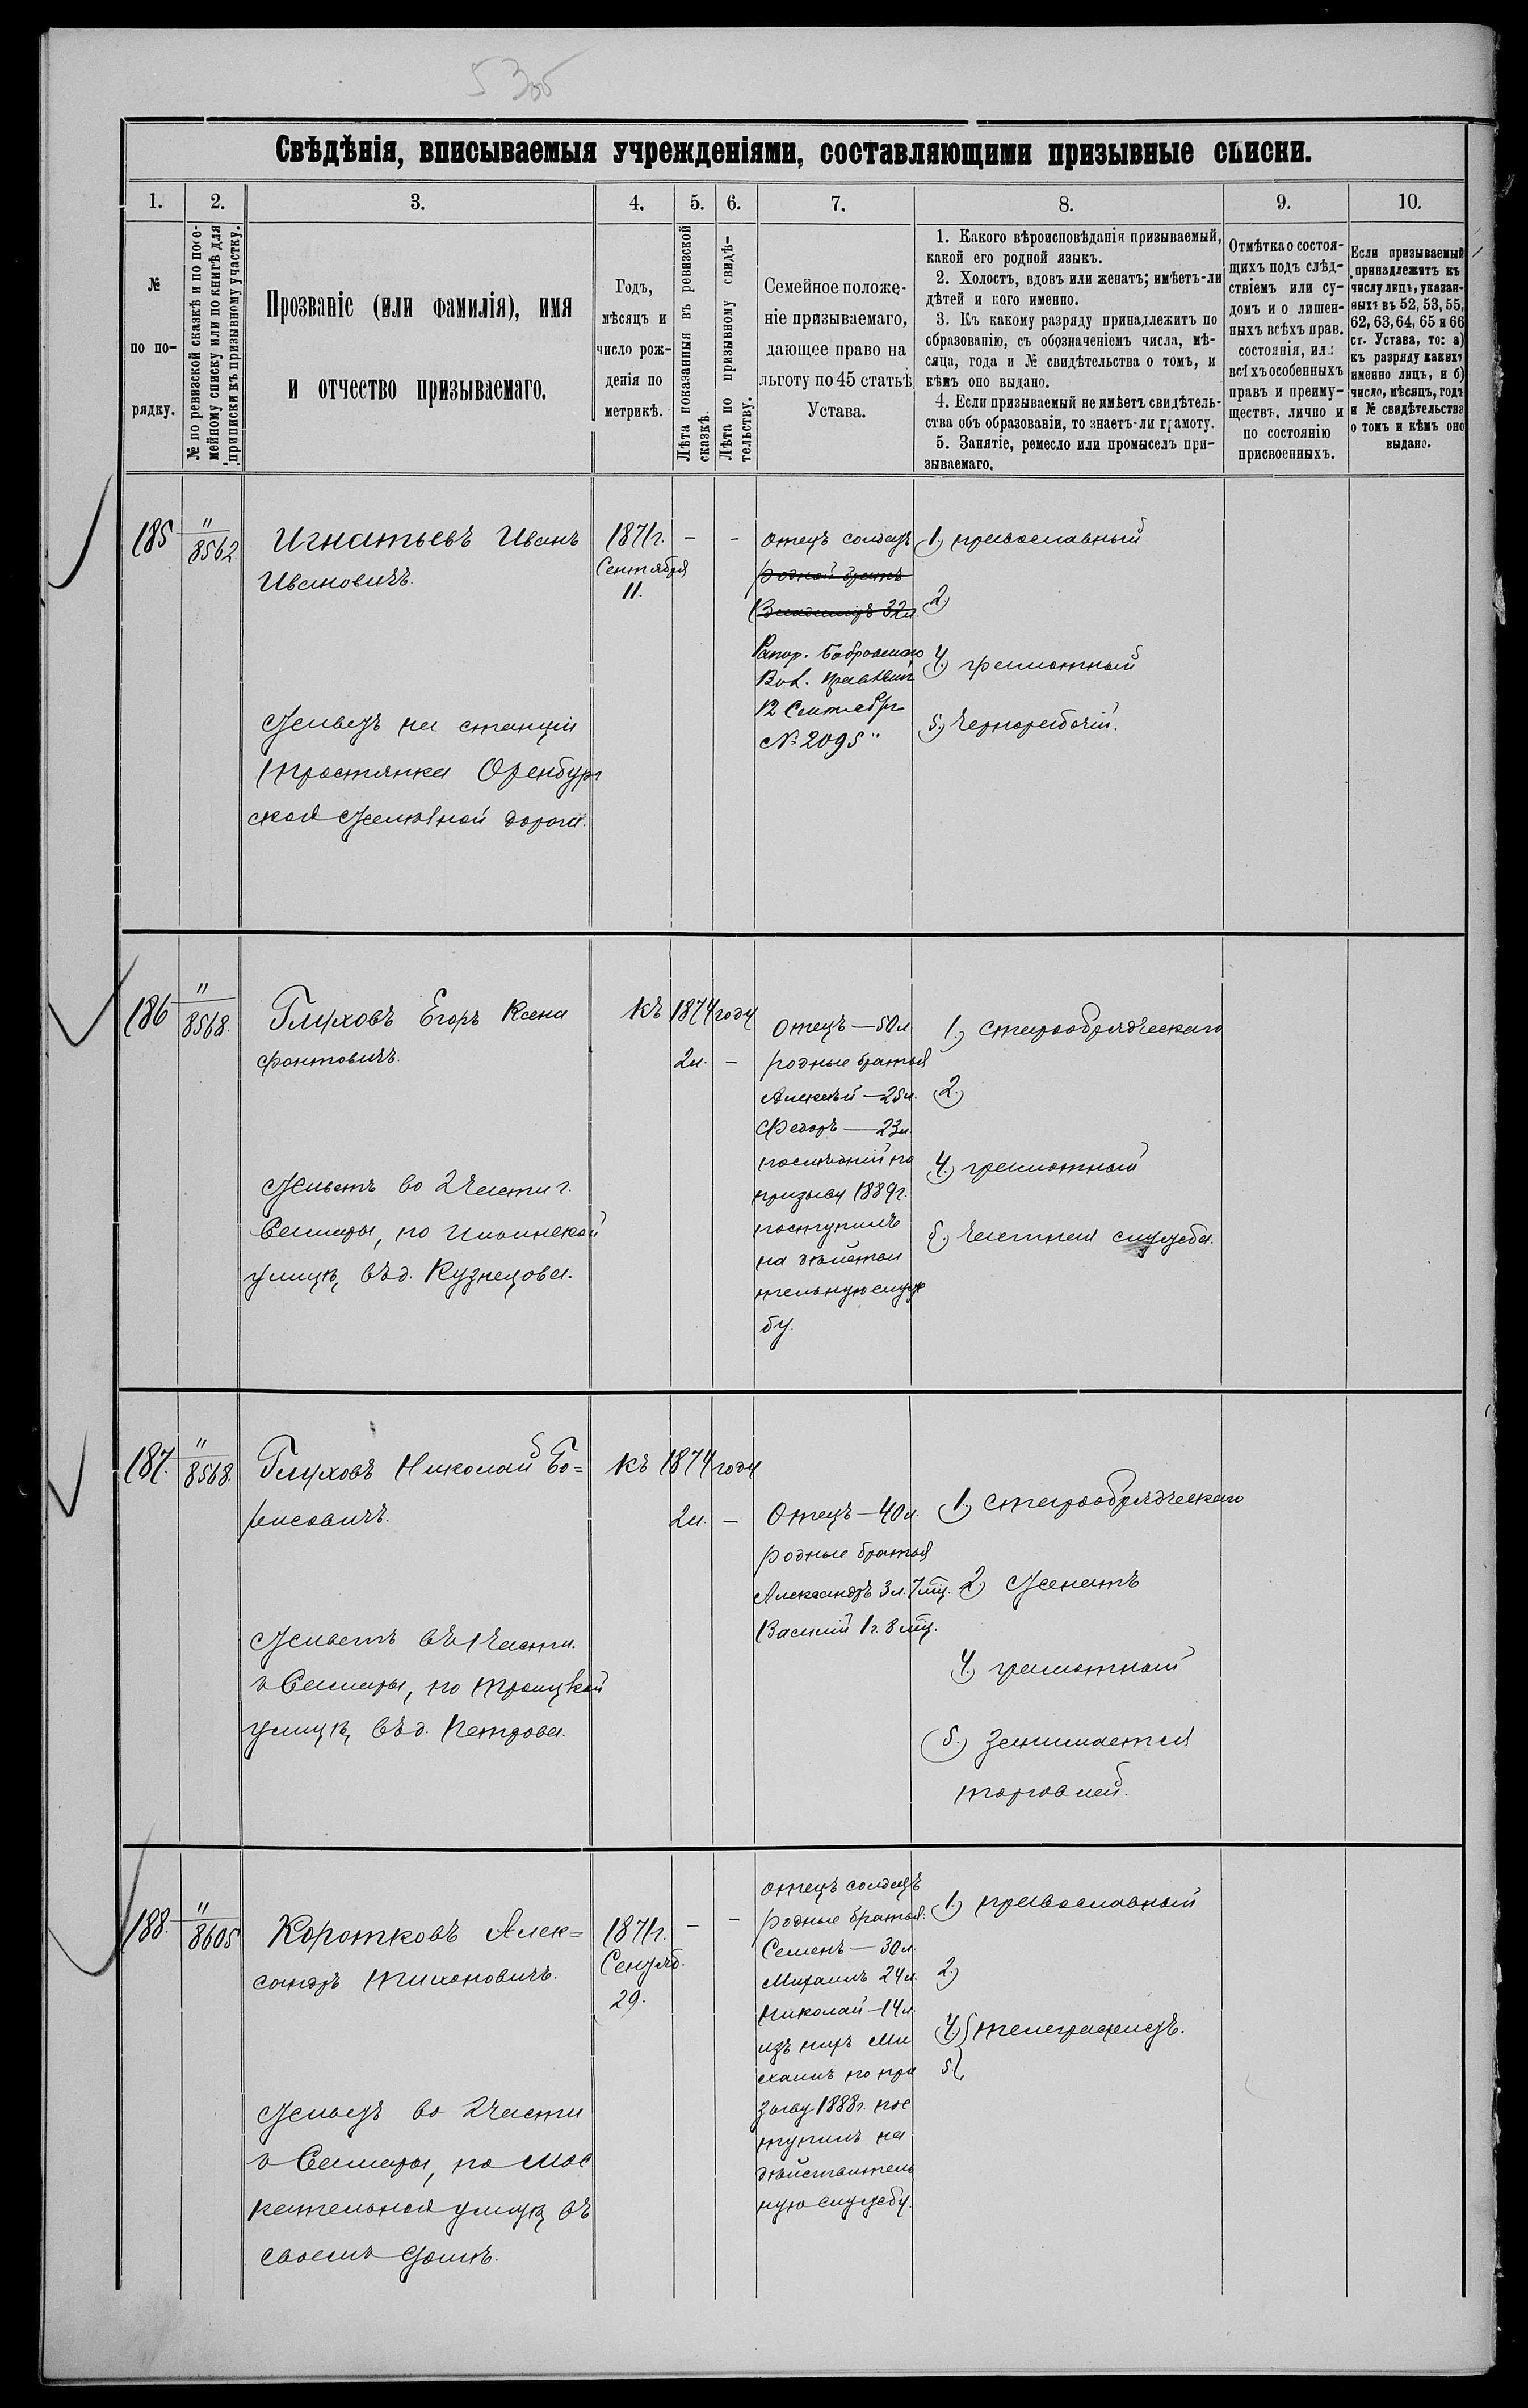 53об
Свѣдѣнія, вписываемыя учрежденіями, составляющими призывные списки.
1. 2. 3. 4. 5. 6. 7. 8. 9. 10.
№
по по-
рядку.
№ по ревизской сказкѣ и по посе-
мейному списку или по книгѣ для
приписки къ призывному участку.
Прозваніе (или фамилія), имя
и отчество призываемаго.
Годъ,
мѣсяцъ и
число рож-
денія по
метрикѣ.
Лѣта показанныя въ ревизской
сказкѣ.
Лѣта по призывному свидѣ-
тельству.
Семейное положе-
ніе призываемаго,
дающее право на
льготу по 45 статьѣ
Устава.
1. Какого вѣроисповѣданія призываемый,
какой его родной языкъ.
2. Холостъ, вдовъ или женатъ; имѣетъ-ли
дѣтей и кого именно.
3. Къ какому разряду принадлежитъ по
образованію, съ обозначеніемъ числа, мѣ-
сяца, года и № свидѣтельства о томъ, и
кѣмъ оно выдано.
4. Если призываемый не имѣетъ свидѣтель-
ства объ образованіи, то знаетъ-ли грамоту.
5. Занятіе, ремесло или промыселъ при-
зываемаго.
Отмѣтка о состоя-
щихъ подъ слѣд-
ствіемъ или су-
домъ и о лишен-
ныхъ всѣхъ прав.
состоянія, или
всѣхъ особенныхъ
правъ и преиму-
ществъ, лично и
по состоянію
присвоенныхъ.
Если призываемый
принадлежитъ къ
числу лицъ, указан-
ныхъ въ 52, 53, 55,
62, 63, 64, 65 и 66
ст. Устава, то: а)
къ разряду какихъ
именно лицъ, и б)
число, мѣсяцъ, годъ
и № свидѣтельства
о томъ и кѣмъ оно
выдано.
185
"
8562
Игнатьевъ Иванъ
Ивановичъ.
Живетъ на станціи
Тростянка Оренбург
ской Желѣзной дороги.
1871г.
Сентября
11.
-
-
Отецъ солдатъ
родной братъ
Владиміръ 32л.
Рапор. Бобровскаго
Вол. Правлен.
12 Сентябр
№ 2095"
1) православный
2)
4) грамотный
5) Чернорабочій.
186
"
8568.
Глуховъ Егоръ Ксено
фонтовичъ.
Живетъ во 2 части г.
Самары, по Ильинской
улицѣ, въ д. Кузнецова.
къ 1874 году
2л. –
Отецъ — 50л.
родные братья
Алексѣй — 25л.
Федоръ — 23л.
послѣдній по
призыву 1889г.
поступилъ
на дѣйстви
тельную служ
бу.
1) старообрядческаго
2)
4) грамотный
5) Частная служба.
187.
"
8568.
Глуховъ Николай Бо=
рисовичъ.
Живетъ въ 1 части.
г Самары, по Троицкой
улицѣ, въ д. Петрова.
къ 1874 году
2л. –
Отецъ — 40л.
родные братья
Александръ 3л. 7 мц.
Василій 1г. 8 мц.
1) старообрядческаго
2) Женатъ
4) грамотный
5.) Занимается
торговлей.
188.
"
8605
Коротковъ Алек=
сандръ Тихоновичъ.
Живетъ во 2 части
г Самары, по Мос
кательной улицѣ въ
своемъ домѣ.
1871г.
Сентяб.
29.
-
-
отецъ солдатъ
родные братья:
Семенъ — 30л.
Михаилъ 24л.
Николай — 14л.
изъ нихъ Ми
хаилъ по при
зыву 1888г. пос
тупилъ на
дѣйствитель
ную службу.
1) православный
2)
4) телеграфистъ.
5)